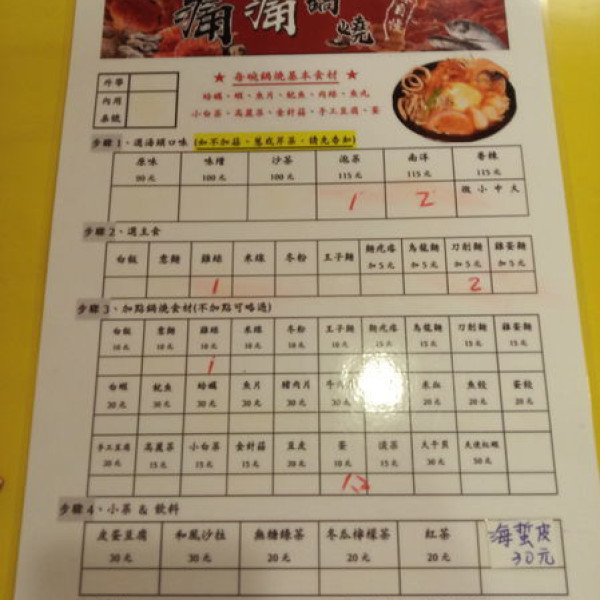 痛 痛 鍋 燒
外帶
內用
桌號
★ 每碗鍋燒基本食材 ★
蛤蠣、蝦、魚片、魷魚、肉絲、魚丸
小白菜、高麗菜、金針菇、手工豆腐、蛋
步驟 1、選湯頭口味 (如不加蒜、蔥或芹菜,請先告知)
原味 味噌 沙茶 泡菜 南洋 香辣
90元 100元 100元 115元 115元 115元
微 小 中 大
1 2
步驟 2、選主食
白飯 意麵 雞絲 米線 冬粉 王子麵 鍋烏龍麵 刀削麵 雞蛋麵
加5元 加5元 加5元 加5元
1 2
步驟 3、加點鍋燒食材(不加點可略過)
白飯 意麵 雞絲 米線 冬粉 王子麵 烏龍麵 刀削麵 雞蛋麵
10元 10元 10元 10元 10元 10元 15元 15元 15元 15元
1
白蝦 魷魚 蛤蠣 魚片 豬肉片 米血 魚餃 蛋餃
30元 30元 30元 30元 30元 20元 20元 20元
手工豆腐 高麗菜 小白菜 金針菇 豆皮 蛋 泡菜 大干貝 天使紅蝦
20元 15元 15元 15元 20元 10元 15元 30元 50元
步驟 4、小菜 & 飲料
皮蛋豆腐 和風沙拉 無糖綠茶 冬瓜檸檬茶 紅茶 海蜇皮
30元 30元 20元 20元 20元 30元